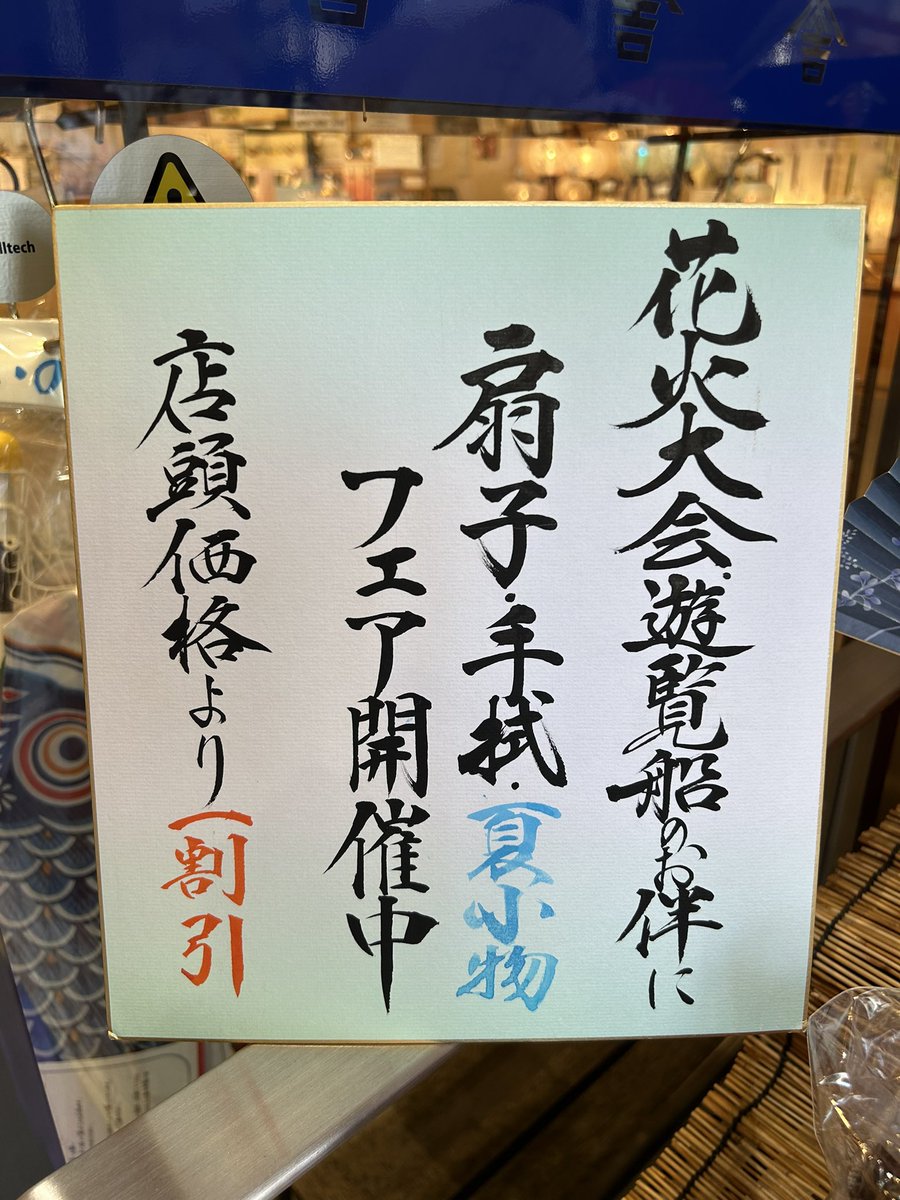 花火大会・遊覧船のお伴に
扇子・手拭・夏小物
フェア開催中
店頭価格より一割引
lltech
舎